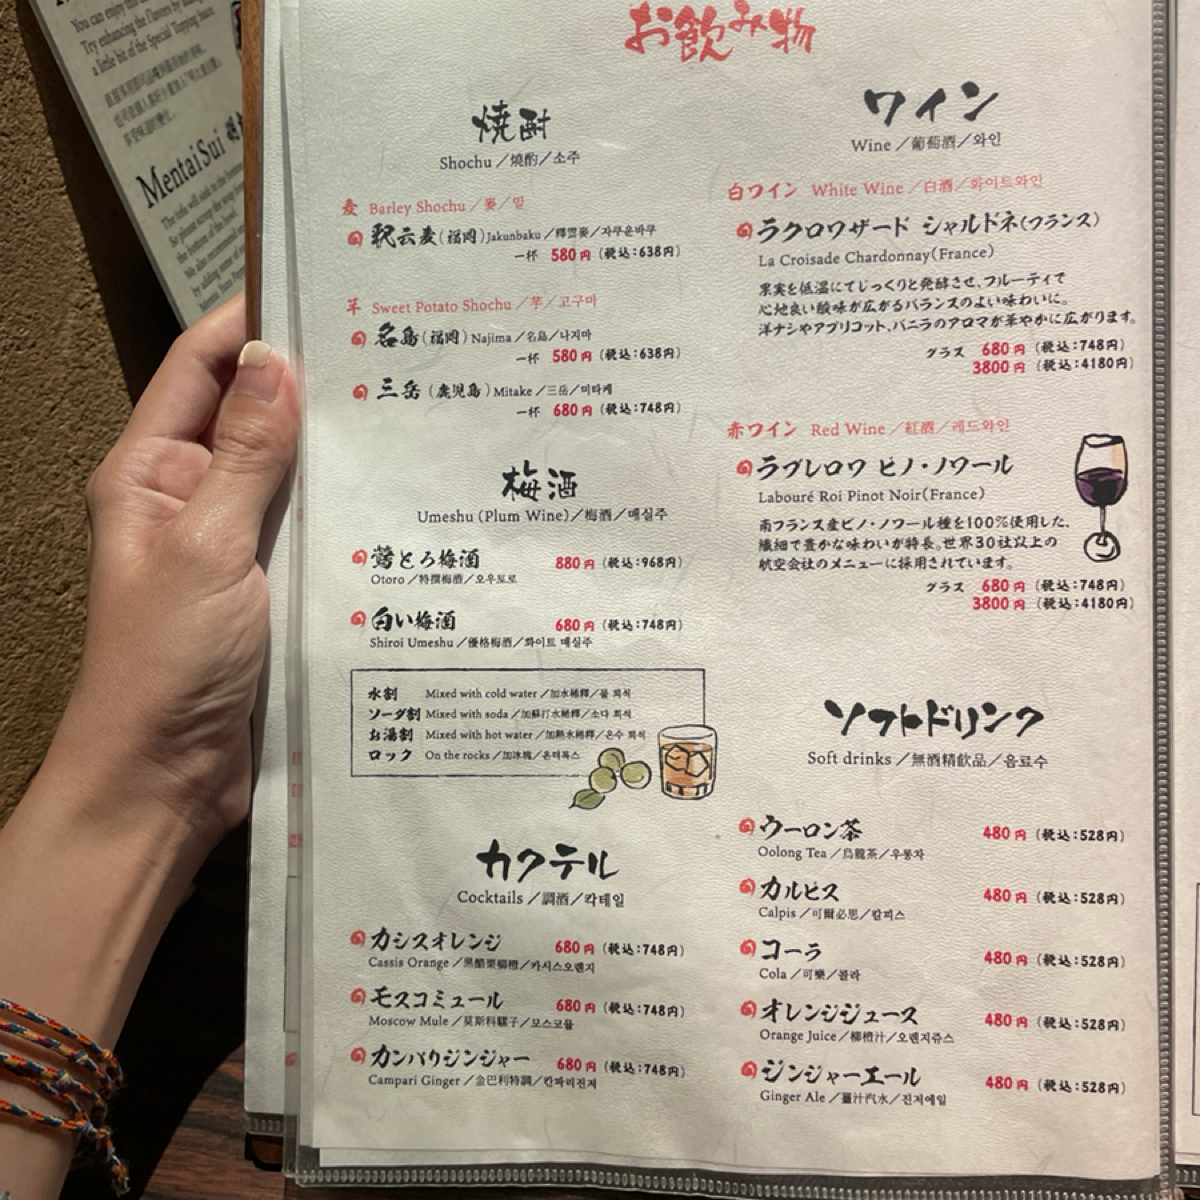 You can enjoy this
Try enhancing the Flavors by
a little bit of the Special Topping Sauce.
MentaiSui
お飲み物
焼酎
Shochu／燒酌／소주
麦 Barley Shochu／麥／밀
釈云麦(福岡)Jakunbaku／釋雲麥／자쿠운바쿠
一杯 580円(税込:638円)
芋 Sweet Potato Shochu／芋／고구마
名島(福岡)Najima／名島／나지마
一杯 580円(税込:638円)
三岳(鹿児島)Mitake／三岳／미타케
一杯 680円(税込:748円)
梅酒
Umeshu (Plum Wine)／梅酒／매실주
鶯とろ梅酒 880円(税込:968円)
Otoro／特撰梅酒／오우토로
白い梅酒 680円(税込:748円)
Shiroi Umeshu／優格梅酒／화이트 매실주
水割 Mixed with cold water／加水稀釋／물 희석
ソーダ割 Mixed with soda／加蘇打水稀釋／소다 희석
お湯割 Mixed with hot water／加熱水稀釋／온수 희석
ロック On the rocks／加冰塊／온더록스
カクテル
Cocktails／調酒／칵테일
カシスオレンジ 680円(税込:748円)
Cassis Orange／黑醋栗柳橙／카시스오렌지
モスコミュール 680円(税込:748円)
Moscow Mule／莫斯科騾子／모스코뮬
カンパリジンジャー 680円(税込:748円)
Campari Ginger／金巴利特調／캄파리진저
ワイン
Wine／葡萄酒／와인
白ワイン White Wine／白酒／화이트와인
ラクロワザード シャルドネ(フランス)
La Croisade Chardonnay(France)
果実を低温にてじっくりと発酵させ、フルーティで
心地良い酸味が広がるバランスのよい味わいに。
洋ナシやアプリコット、バニラのアロマが華やかに広がります。
グラス 680円(税込:748円)
3800円(税込:4180円)
赤ワイン Red Wine／紅酒／레드와인
ラブレロワ ピノ・ノワール
Labouré Roi Pinot Noir(France)
南フランス産ピノ・ノワール種を100%使用した、
繊細で豊かな味わいが特長。世界30社以上の
航空会社のメニューに採用されています。
グラス 680円(税込:748円)
3800円(税込:4180円)
ソフトドリンク
Soft drinks／無酒精飲品／음료수
ウーロン茶 480円(税込:528円)
Oolong Tea／烏龍茶／우롱차
カルピス 480円(税込:528円)
Calpis／可爾必思／칼피스
コーラ 480円(税込:528円)
Cola／可樂／콜라
オレンジジュース 480円(税込:528円)
Orange Juice／柳橙汁／오렌지쥬스
ジンジャーエール 480円(税込:528円)
Ginger Ale／薑汁汽水／진저에일